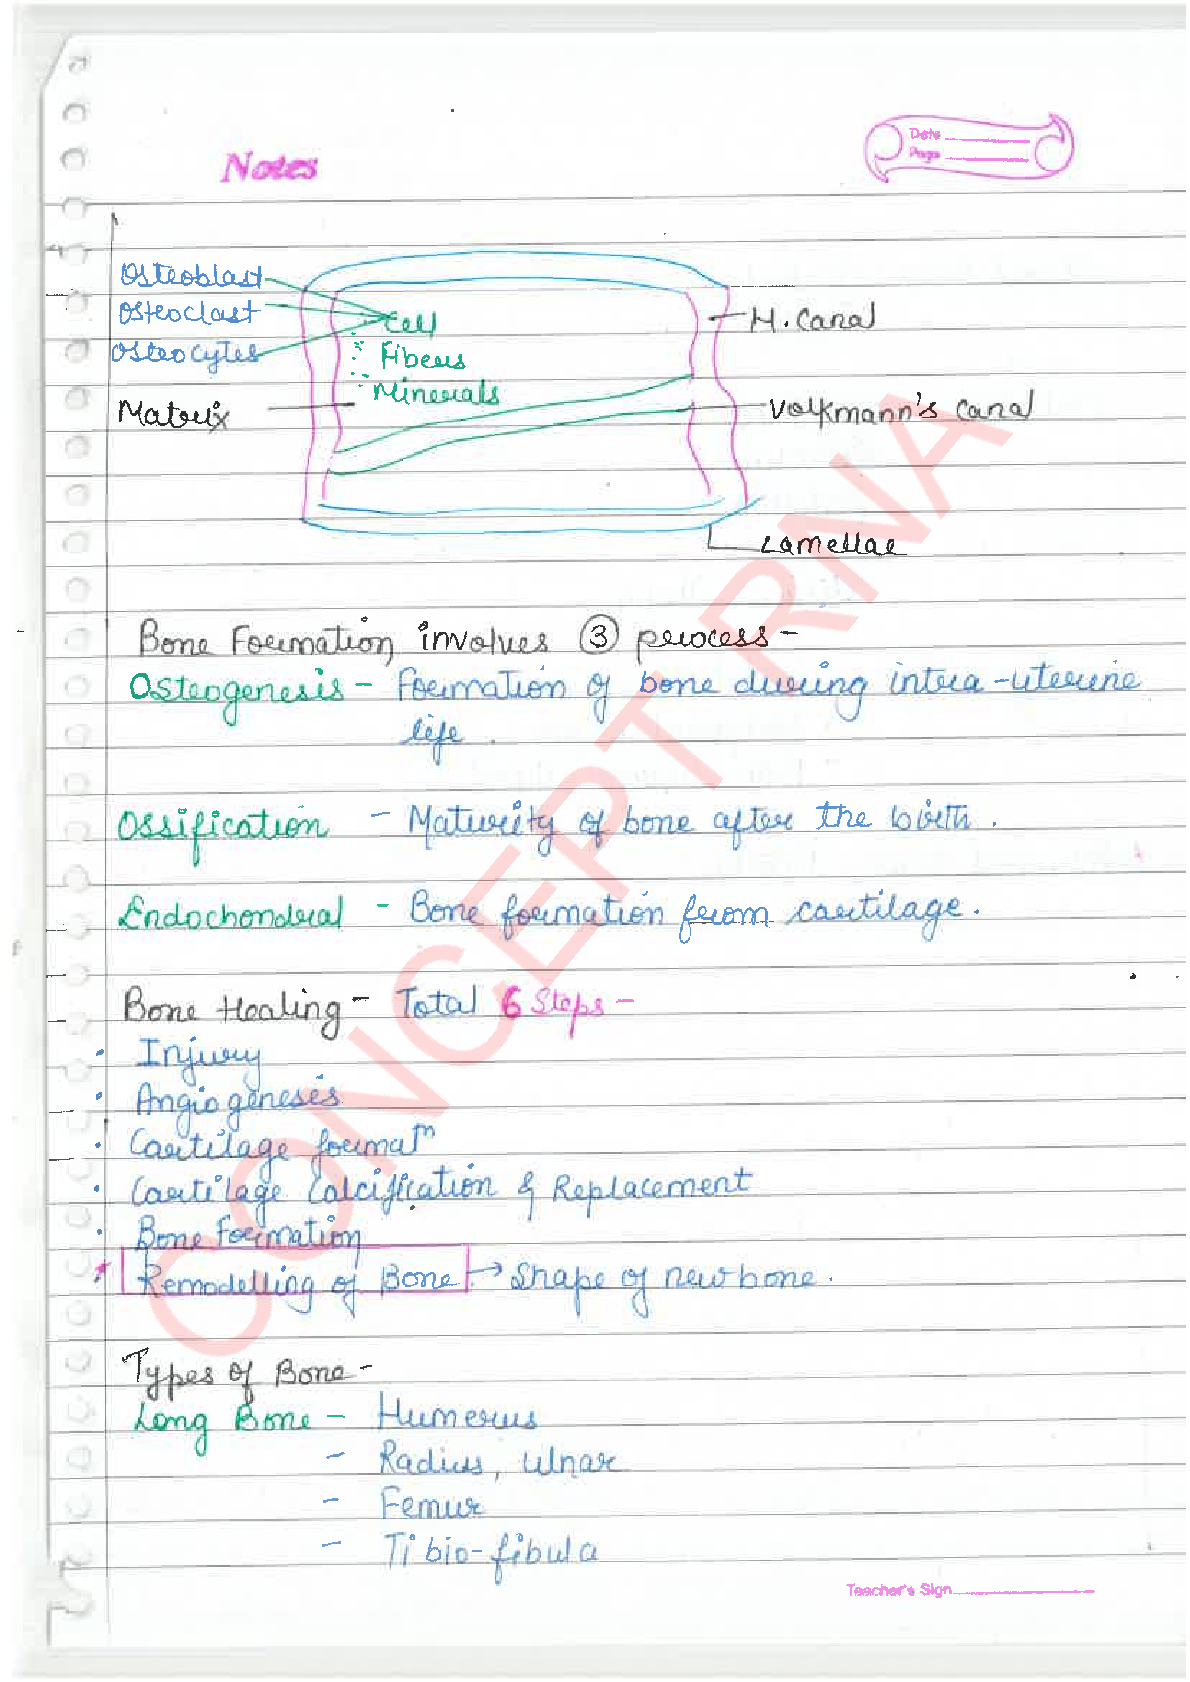 Date
Page
Notes
Osteoblast
Osteoclast
Osteocytes
Matrix
Cell
Fibers
Minerals
H. Canal
Volkmann's Canal
Lamellae
Bone Formation involves 3 process -
Osteogenesis - Formation of bone during intra-uterine
life.
Ossification - Maturity of bone after the birth.
Endochondral - Bone formation from cartilage.
Bone Healing - Total 6 Steps -
• Injury
• Angiogenesis
• Cartilage formatⁿ
• Cartilage Calcification & Replacement
• Bone Formation
* Remodelling of Bone → Shape of new bone.
Types of Bone -
Long Bone - Humerus
- Radius, Ulnar
- Femur
- Tibio-fibula
Teacher's Sign
CONCEPT RNA